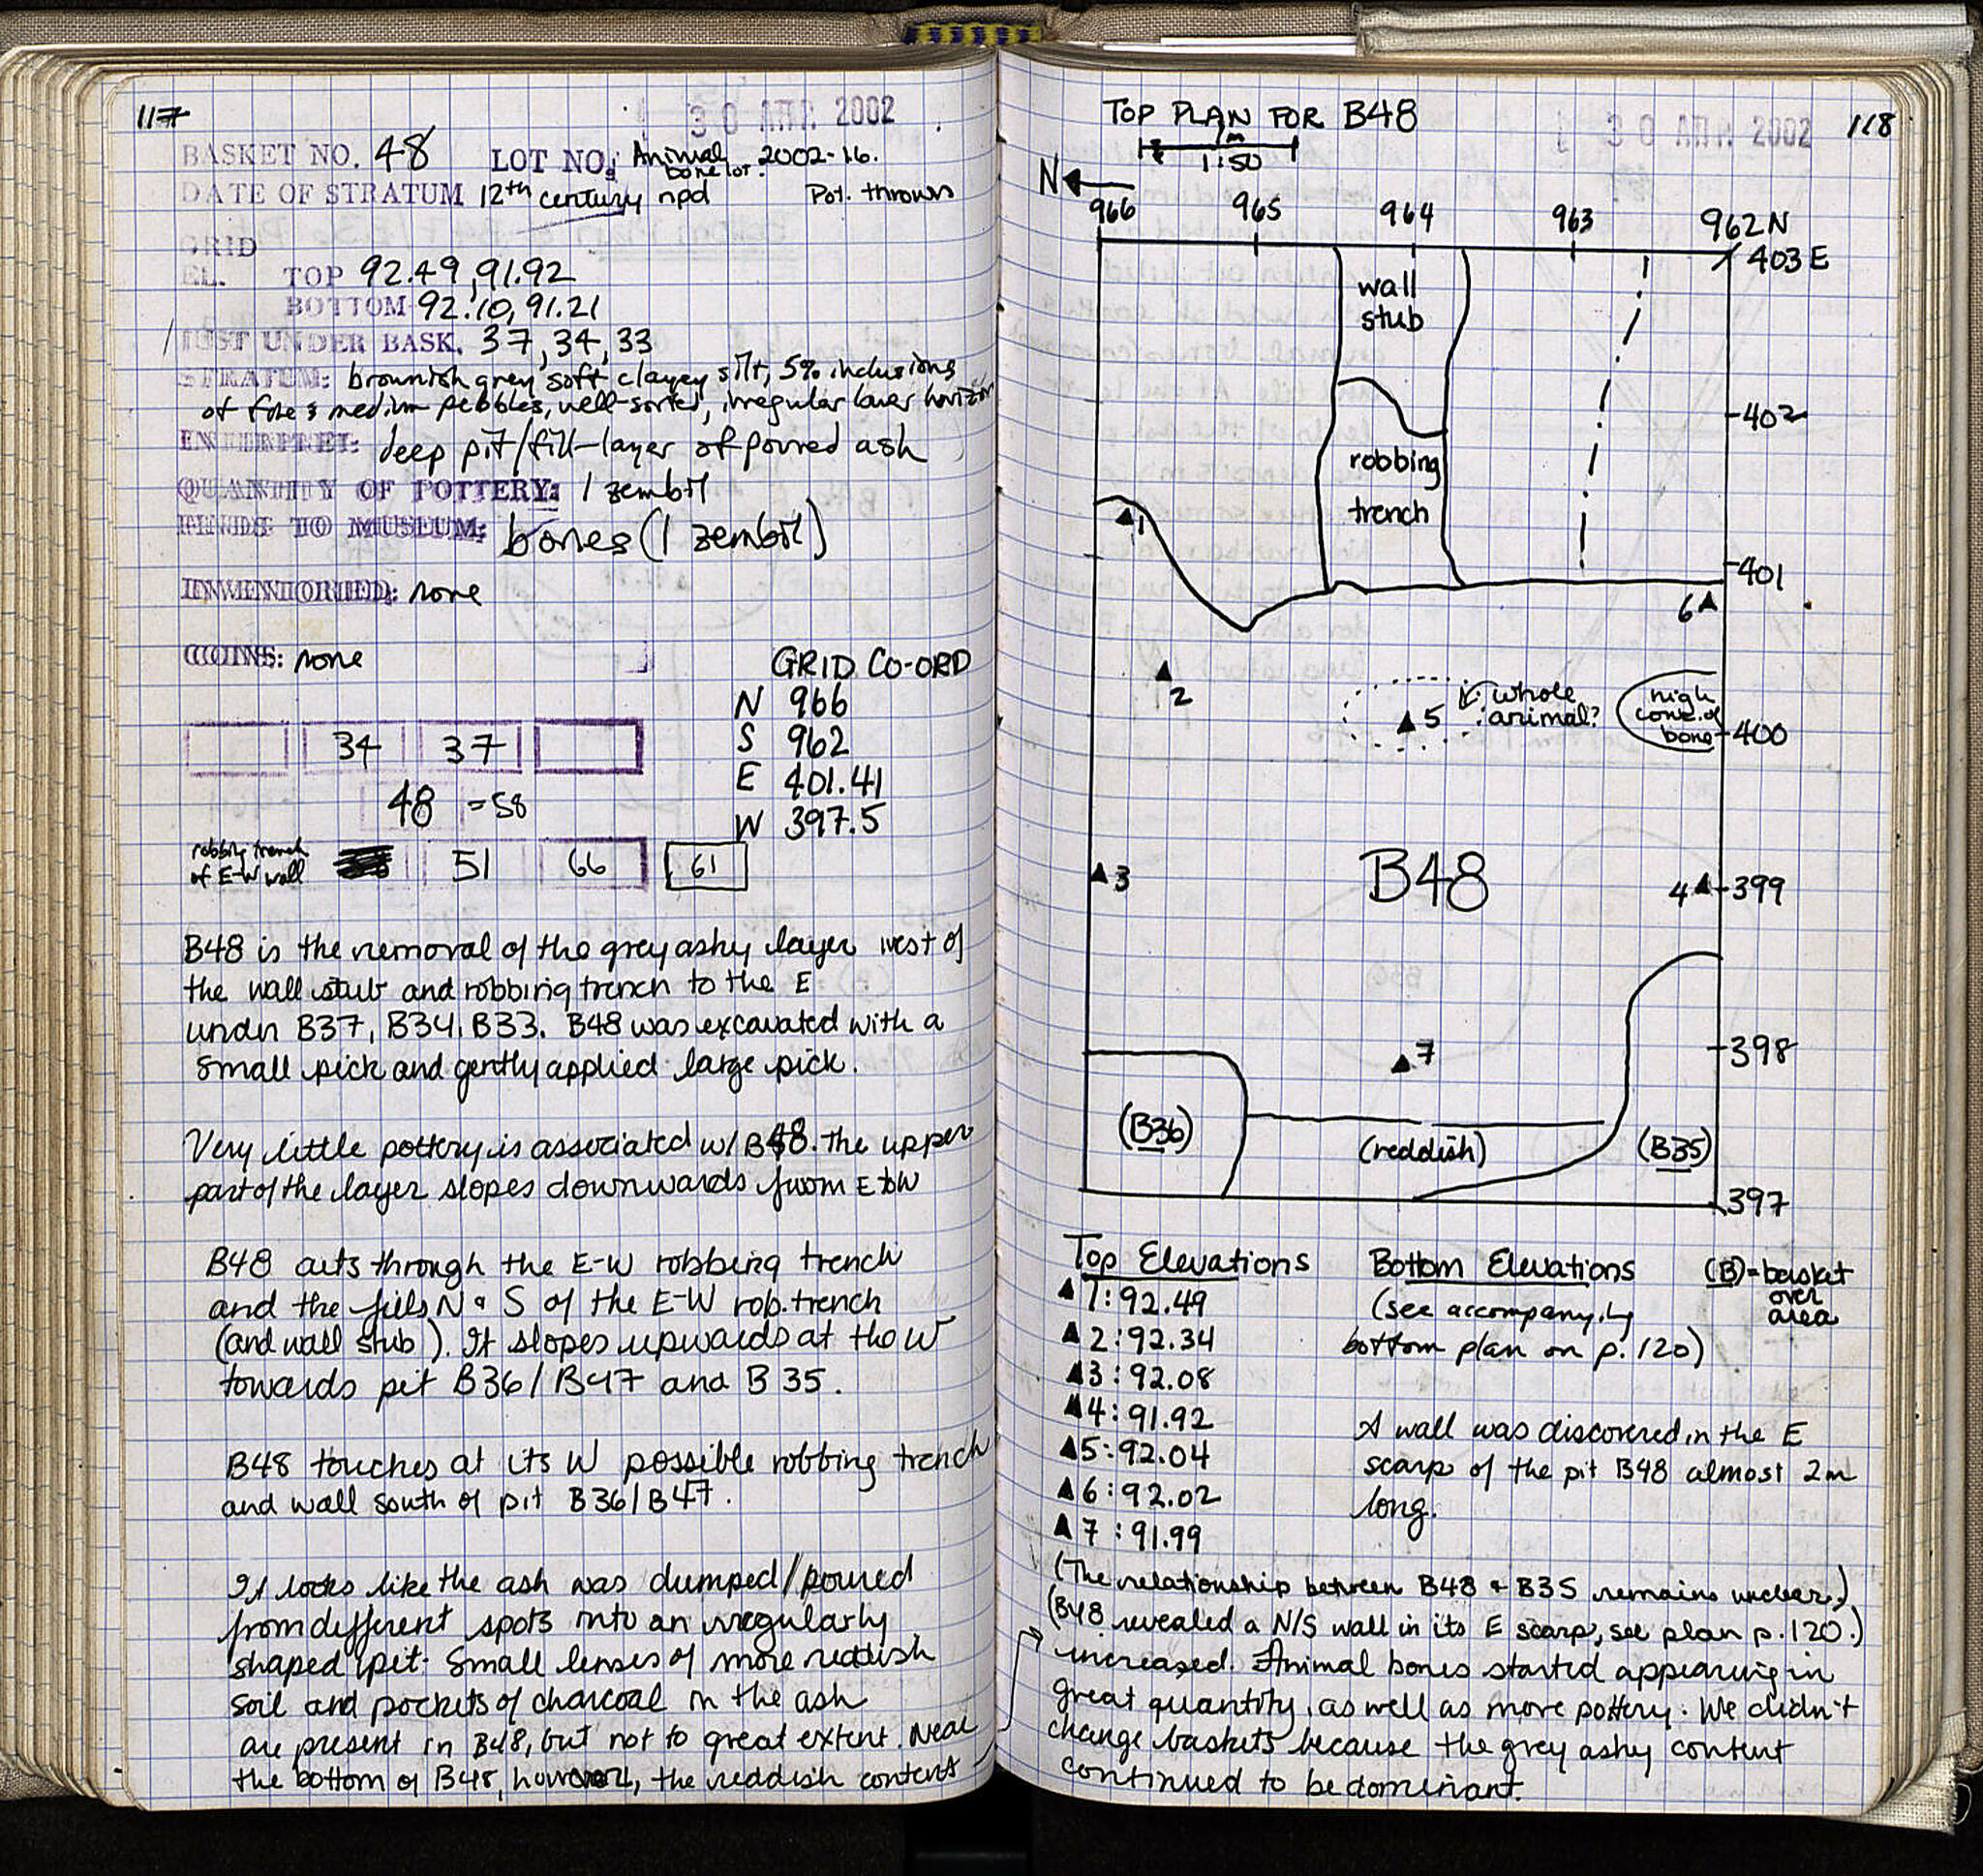 117
30 ΑΠΡ. 2002
BASKET NO. 48 LOT NO: Animal bone lot. 2002-16.
DATE OF STRATUM 12th century npd Pot. thrown
GRID
EL. TOP 92.49, 91.92
BOTTOM 92.10, 91.21
JUST UNDER BASK. 37, 34, 33
STRATUM: brownish grey soft clayey silt, 5% inclusions
of fine & medium pebbles, well-sorted, irregular lower horizon
INTERPRET: deep pit/fill-layer of poured ash
QUANTITY OF POTTERY: 1 zembil
FINDS TO MUSEUM: bones (1 zembil)
INVENTORIED: none
COINS: none
GRID CO-ORD
N 966
S 962
E 401.41
W 397.5
34 37
48 =58
robbing trench
of E-W wall
51 66 61
B48 is the removal of the grey ashy layer west of
the wall stub and robbing trench to the E
under B37, B34, B33. B48 was excavated with a
small pick and gently applied large pick.
Very little pottery is associated w/ B48. the upper
part of the layer slopes downwards from E to W
B48 cuts through the E-W robbing trench
and the fills N & S of the E-W rob. trench
(and wall stub). It slopes upwards at the W
towards pit B36/B47 and B35.
B48 touches at its W possible robbing trench
and wall south of pit B36/B47.
It looks like the ash was dumped/poured
from different spots into an irregularly
shaped pit. Small lenses of more reddish
soil and pockets of charcoal in the ash
are present in B48, but not to great extent. Near
the bottom of B48, however, the reddish content
TOP PLAN FOR B48
30 ΑΠΡ. 2002
118
1m
1:50
N
966 965 964 963 962 N
403 E
wall
stub
402
robbing
trench
1
401
6
2
whole
animal?
5
high
conc. of
bone
400
3
B48
4
399
7
398
(B36)
(reddish)
(B35)
397
Top Elevations
▲1: 92.49
▲2: 92.34
▲3: 92.08
▲4: 91.92
▲5: 92.04
▲6: 92.02
▲7: 91.99
Bottom Elevations
(see accompany.ing
bottom plan on p. 120)
(B)=basket
over
area
A wall was discovered in the E
scarp of the pit B48 almost 2m
long.
(The relationship between B48 & B35 remains unclear.)
(B48 revealed a N/S wall in its E scarp, see plan p. 120.)
increased. Animal bones started appearing in
great quantity, as well as more pottery. We didn't
change baskets because the grey ashy content
continued to be dominant.